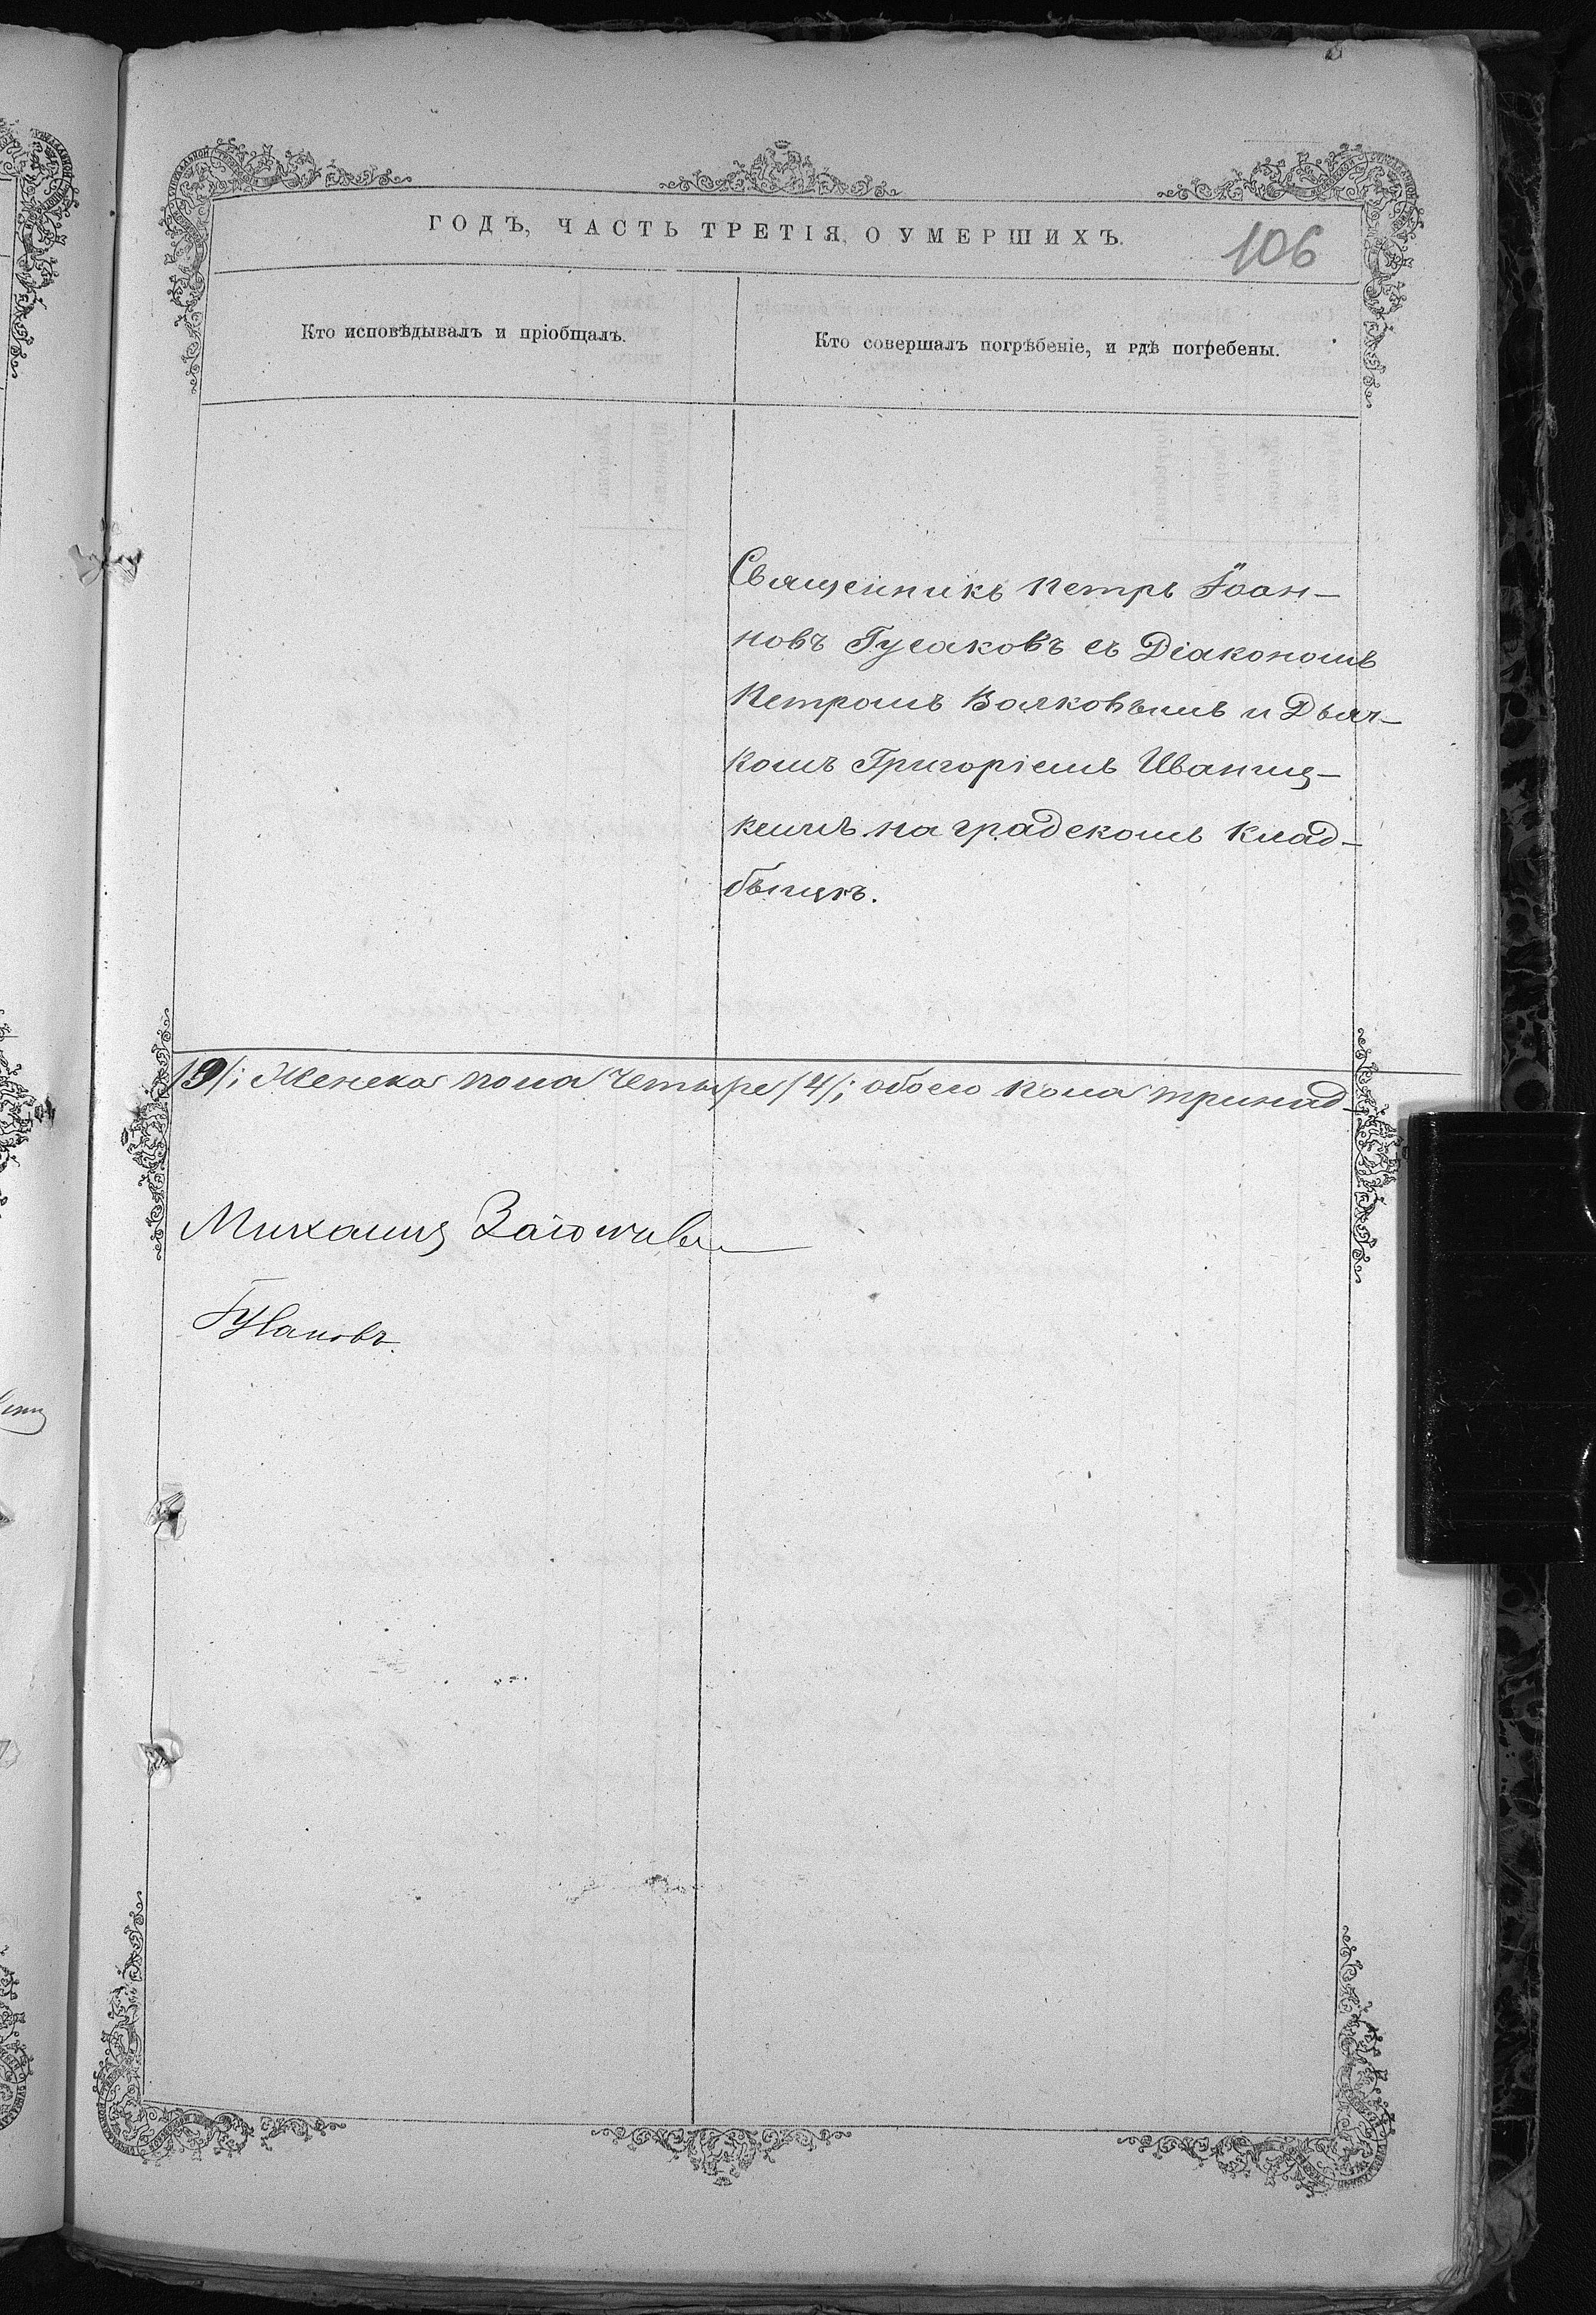 ГОДЪ, ЧАСТЬ ТРЕТІЯ, О УМЕРШИХЪ.
106
Кто исповѣдывалъ и пріобщалъ.
Кто совершалъ погребеніе, и гдѣ погребены.
Священникъ Петръ Іоан-
новъ Гусаковъ съ Діакономъ
Петромъ Волковымъ и Дьяч-
комъ Григоріемъ Иваниц-
кимъ на градскомъ клад-
быщѣ.
/9/; Женска пола четыре /4/; обоего пола тринад-
Михаилъ
Гусаковъ.